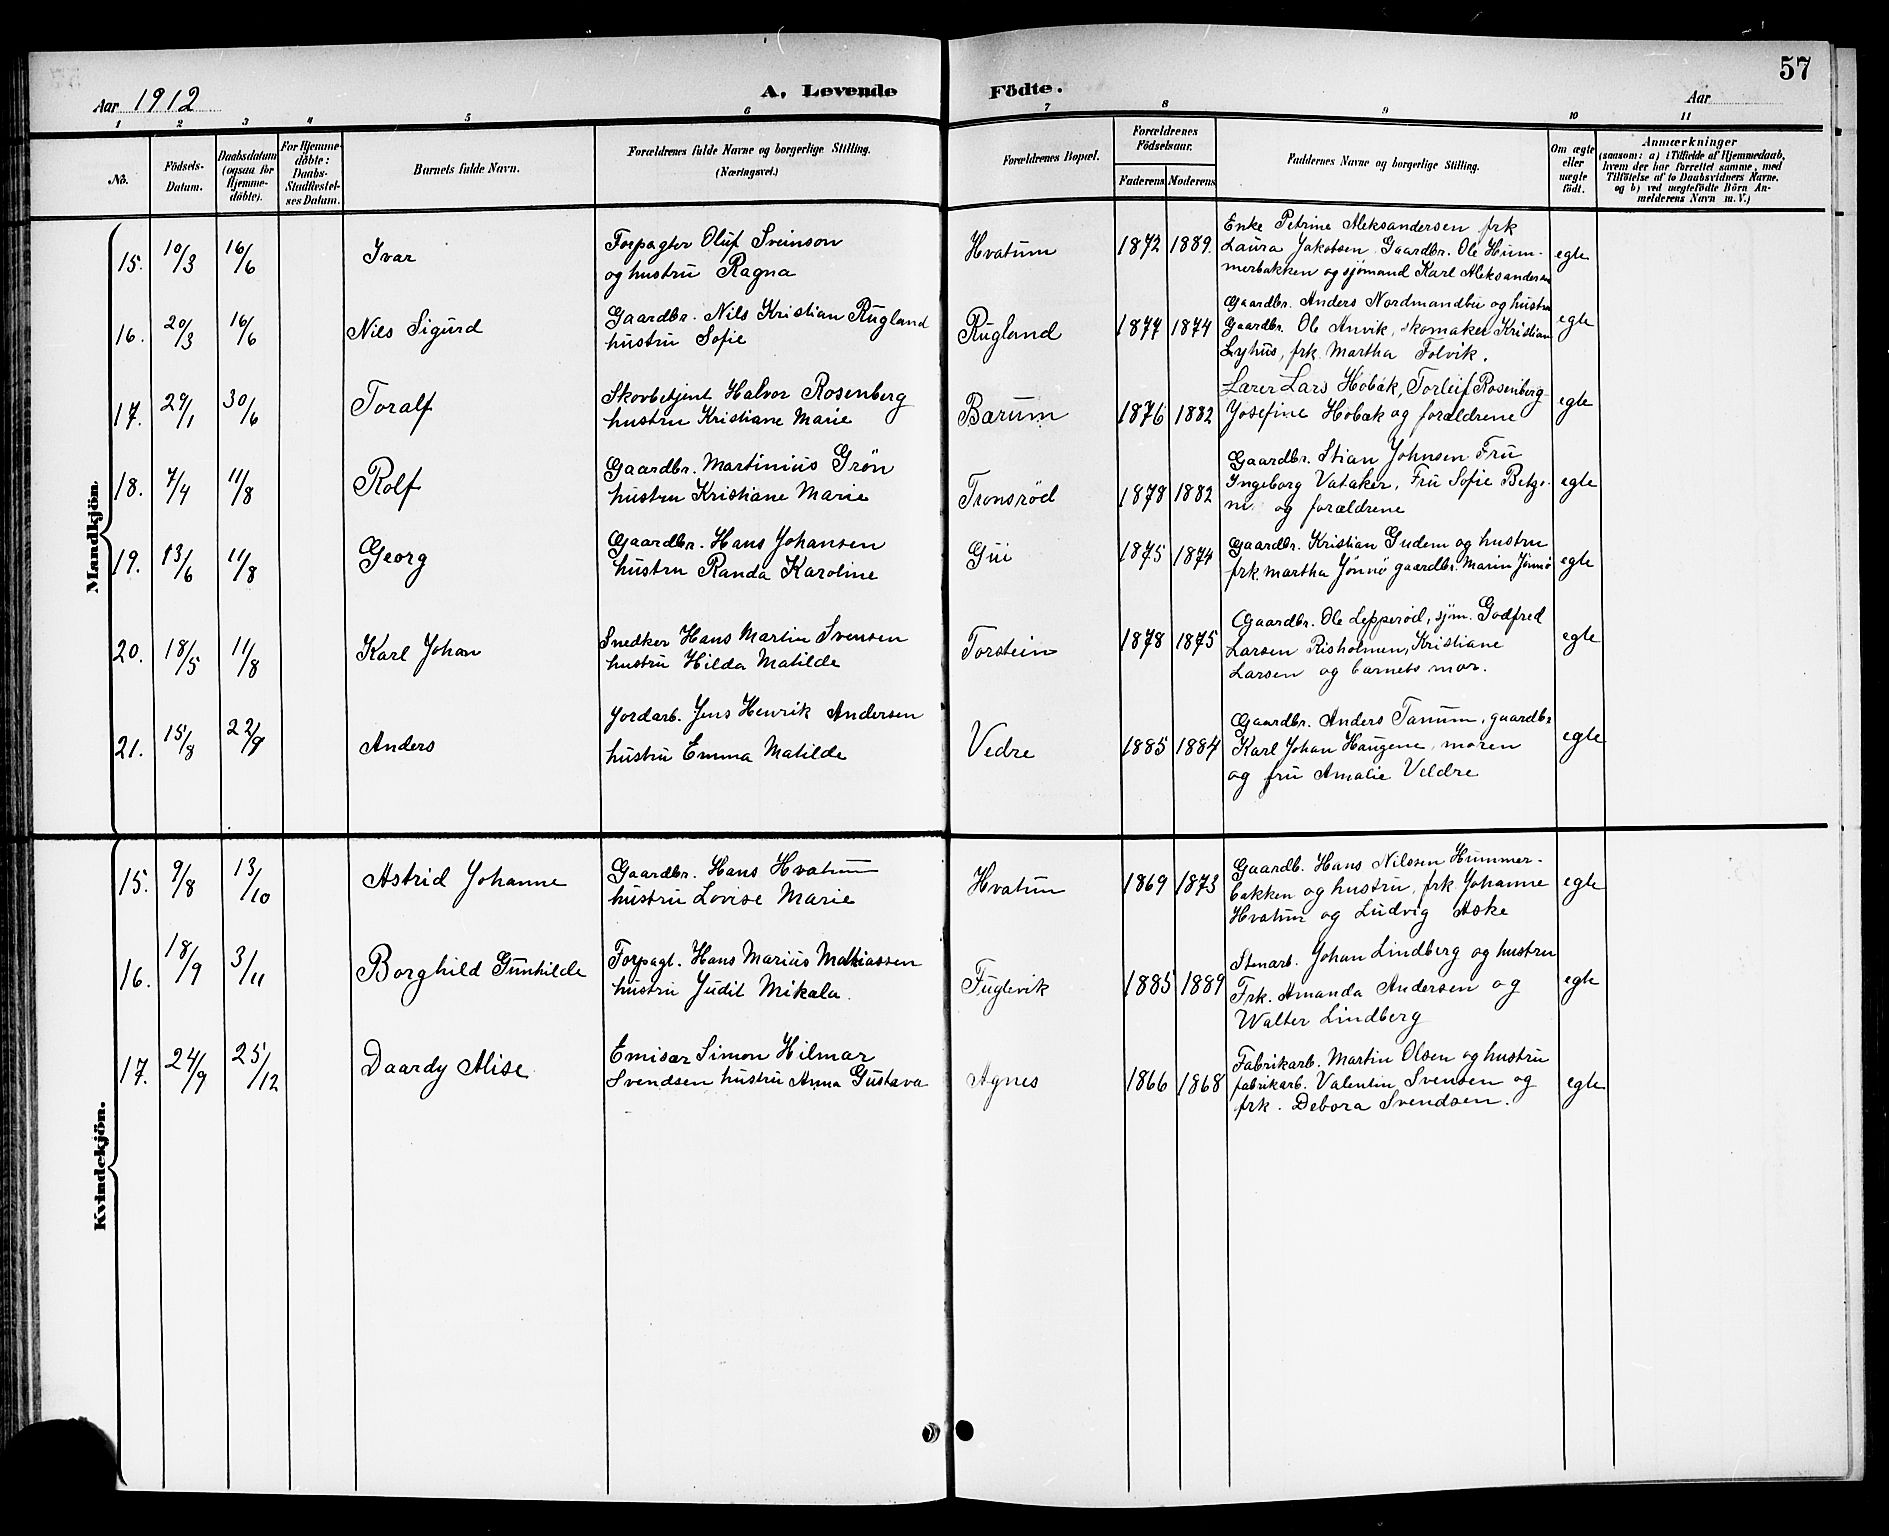 57
Aar 1912 A. Levende Födte. Aar
1 2 3 4 5 6 7 8 9 10 11
No. Födsels-Datum. Daabsdatum (ogsaa for Hjemme-döbte). For Hjemme-döbte: Daabs-Stadfæstel-ses Datum. Barnets fulde Navn. Forældrenes fulde Navne og borgerlige Stilling. (Næringsvei.) Forældrenes Bopæl. Forældrenes Födselsaar. Faderens Moderens Faddernes Navne og borgerlige Stilling. Om ægte eller uægte födt. Anmærkninger (saasom: a) i Tilfælde af Hjemmedaab, hvem der har forrettet samme, med Tilföielse af to Daabsvidners Navne, og b) ved uægtefödte Börn An-melderens Navn m. V.)
Mandkjön.
15. 10/3 16/6 Ivar Forpagter Oluf Sveinson Hvatum 1872 1889. Enke Petrine Aleksandersen frk egte
og hustru Ragna Laura Jakobsen Gaardbr. Ole Hum-
merbakken og sjømand Karl Aleksandersen
16. 20/3 16/6 Nils Sigurd Gaardbr. Nils Kristian Rugland Rugland 1877 1874 Gaardbr. Anders Nordmandbu og hustru egte
hustru Sofie Gaardbr. Ole Anvik, skomaker Kristian
Lyhus, frk. Martha Folvik.
17. 29/1 30/6 Toralf Skovbetjent Halvor Rosenberg Bærum 1876 1882 Lærer Lars Hobæk, Torleif Rosenberg egte
hustru Kristiane Marie Josefine Hobæk og forældrene
18. 7/4 11/8 Rolf Gaardbr. Martinius Grøn Tronsrød 1878 1882 Gaardbr. Stian Johnsen Fru egte
hustru Kristiane Marie Ingeborg Vataker, Fru Sofie
og forældrene
19. 13/6 11/8 Georg Gaardbr. Hans Johansen Gui 1875 1874 Gaardbr. Kristian Gudem og hustru egte
hustru Randa Karoline frk. Martha Jønnø gaardbr. Marin Jønnø
20. 18/5 11/8 Karl Johan Snedker Hans Martin Svensen Torstein 1878 1875 Gaardbr. Ole Lepperød, sjøm. Godfred egte
hustru Hilda Matilde Larsen Risholmen, Kristiane
Larsen og barnets mor.
21. 15/8 22/9 Anders Jordarb. Jens Henrik Andersen Vedre 1885 1884 Gaardbr. Anders Tanum, gaardbr egte
hustru Emma Matilde Karl Johan Haugene, moren
og fru Amalie Veldre
Kvindekjön.
15. 9/8 13/10 Astrid Johanne Gaardbr. Hans Hvatum Hvatum 1869 1873 Gaardb. Hans Nilssen Hummer- egte
hustru Lovise Marie bakken og hustru, frk Johanne
Hvatum og Ludvig Aske
16. 18/9 3/11 Borghild Gunhilde Forpagt. Hans Marius Mathiassen Fuglevik 1885 1889 Stenarb. Johan Lindberg og hustru egte
hustru Judit Mikala. Frk. Amanda Andersen og
Walter Lindberg
17. 24/9 25/12 Daardy Alise Emisær Simon Hilmar Agnes 1866 1868 Fabrikarb. Martin Olsen og hustru egte
Svendsen hustru Anna Gustava fabrikarb. Valentin Svensen og
frk. Debora Svendsen.